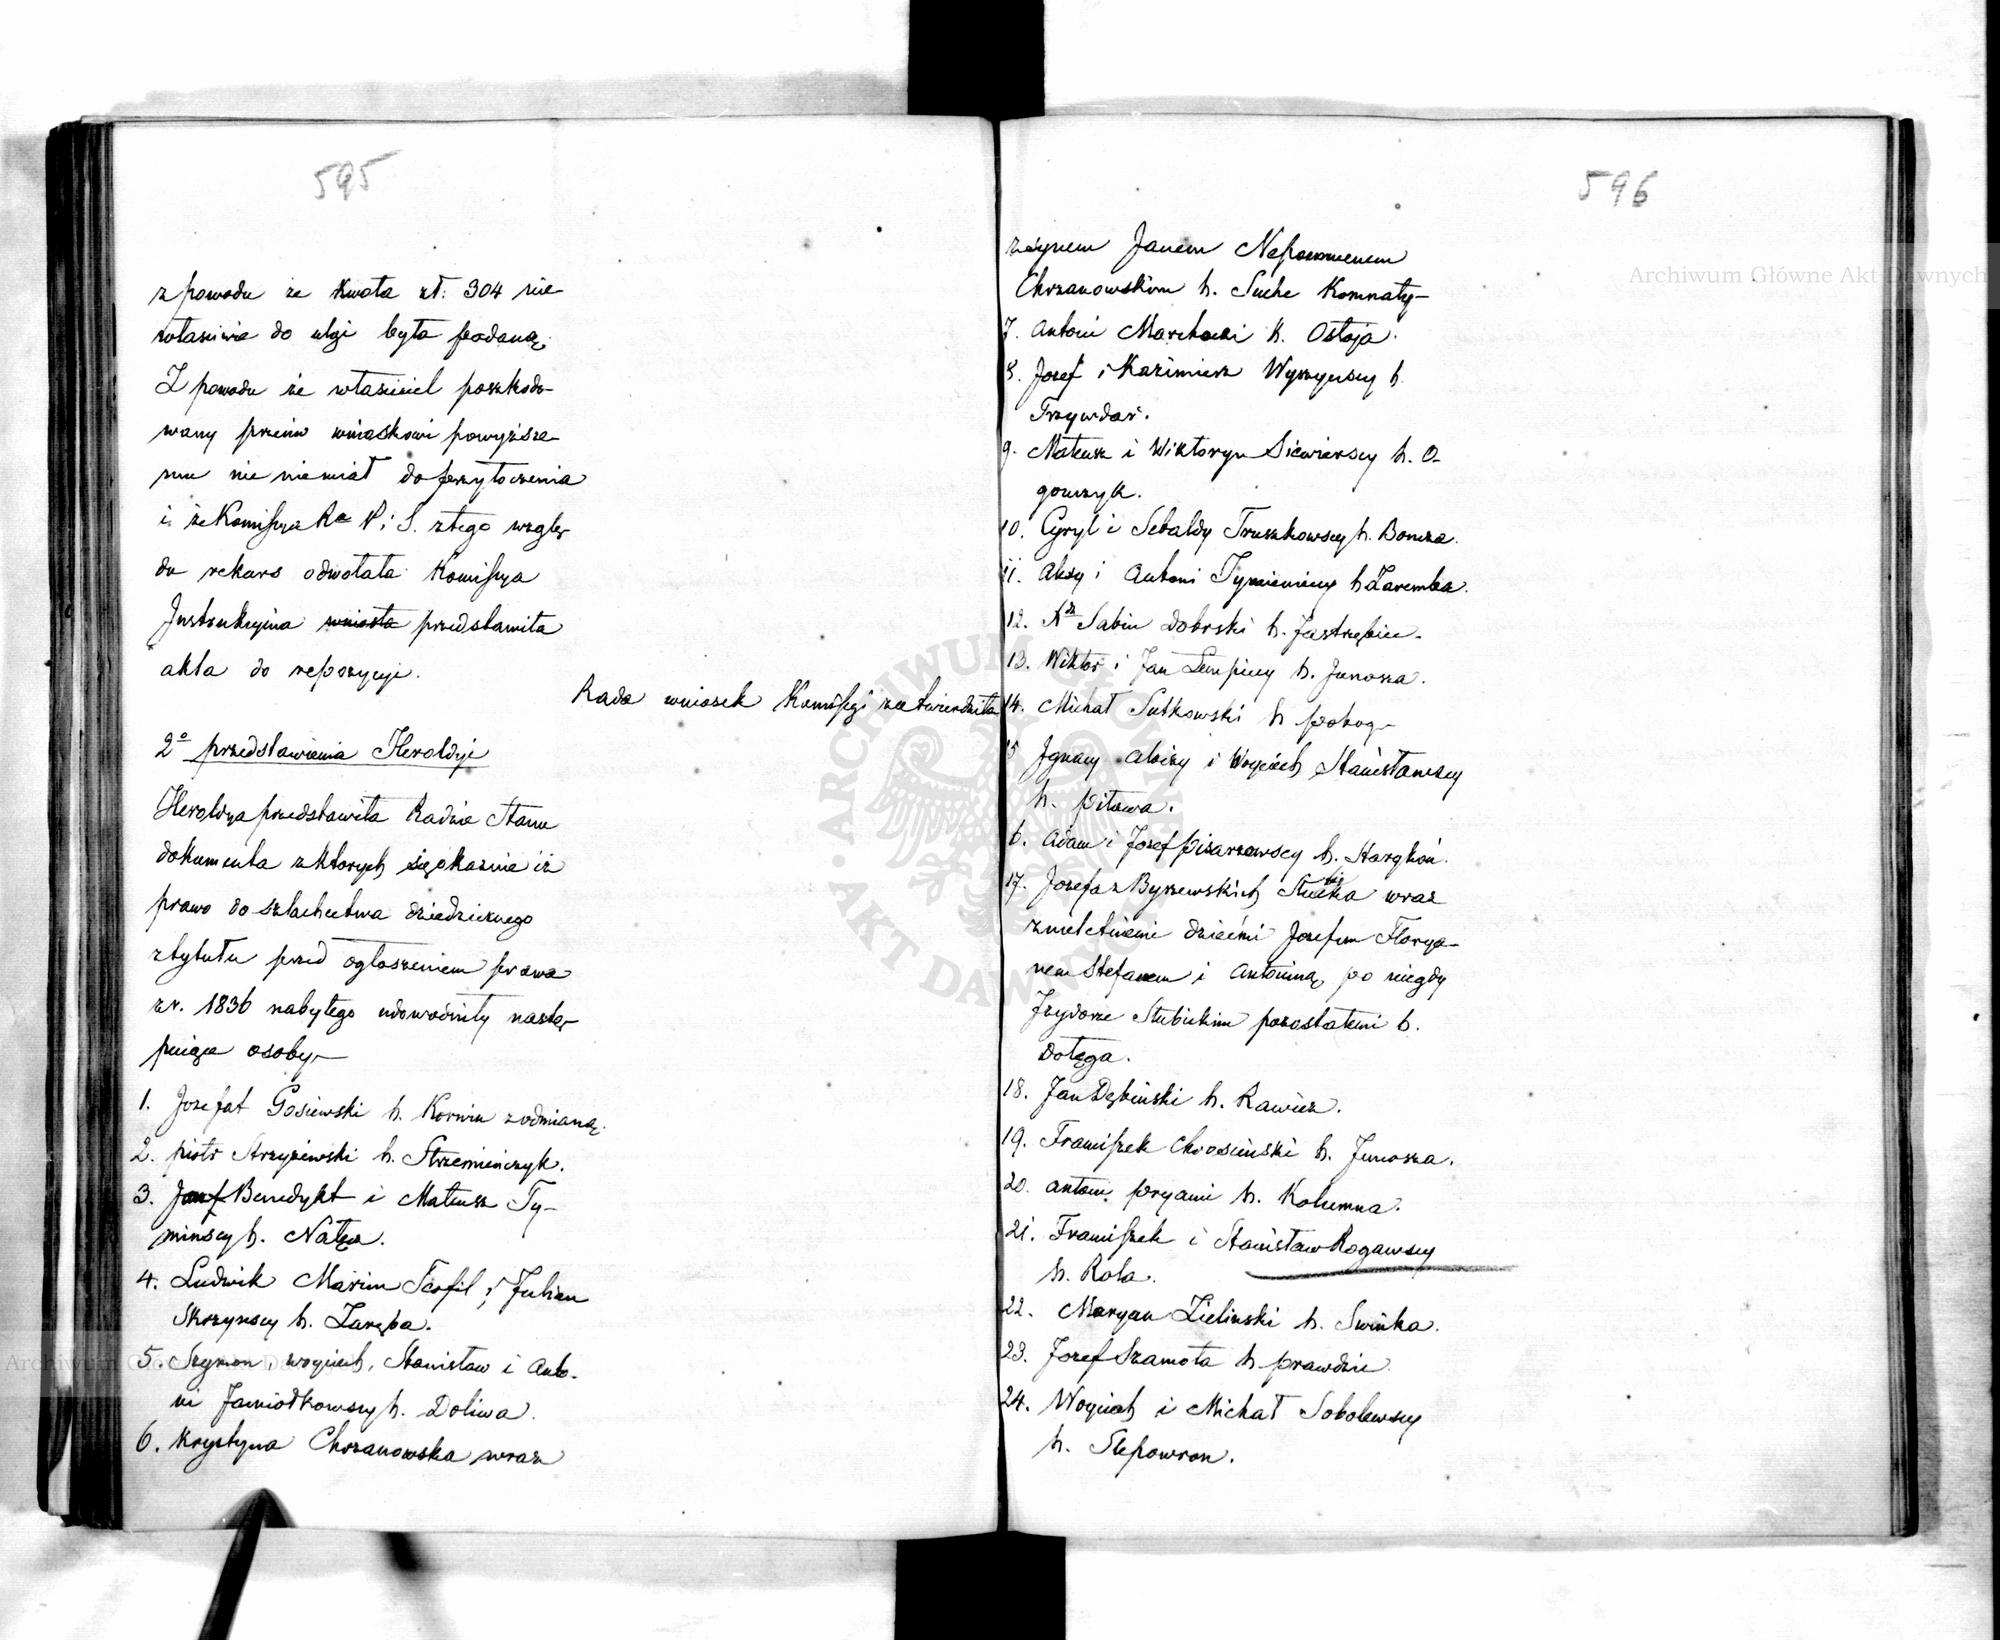 595
z powodu że kwota zł: 304 nie-
właściwie do ulgi była podaną;
Z powodu że właściciel poszkodo-
wany przeciw wnioskowi powyższe-
mu nic niemiał do przytoczenia
i że Komissya R. P. i S. z tego wzglę-
du rekurs odwołała Komissya
Instrukcyjna wniosła przedstawiła
akta do repozycyi.
Rada wniosek Komissyi zatwierdziła
2o przedstawienia Heroldyi
Heroldya przedstawiła Radzie Stanu
dokumenta z ktorych się okazuie iż
prawo do szlachectwa dziedzicznego
z tytułu przed ogłoszeniem prawa
z r. 1836 nabytego udowodniły nastę-
puiące osoby
1. Jozefat Gosiewski h. Korwin z odmianą.
2. Piotr Strzyżewski h. Strzemieńczyk.
3. Benedykt i Mateusz Ty-
mińscy h. Nałęcz.
4. Ludwik Maxim Teofil i Julian
Skrzynscy h. Zaręba.
5. Szymon, Woyciech, Stanisław i Anto-
ni Jawiołkowscy h. Doliwa.
6. Krystyna Chrzanowska wraz
596
z synem Janem Nepomucenem
Chrzanowskim h. Suche Komnaty
7. Antoni Marchocki h. Ostoja.
8. Jozef i Kazimierz Wyszynscy h.
Trzywdar.
9. Mateusz i Wiktoryn Siewierscy h. O-
gonczyk.
10. Cyryl i Sebaldy Truszkowscy h. Boncza.
11. Alexy i Antoni Tymieniccy h Zaremba.
12. Xdz Sabin Dobrski h. Jastrzębiec.
13. Wiktor i Jan Lempiccy h. Junosza.
14. Michał Sutkowski h Pobog
15 Ignacy Aloizy i Woyciech Stanisławscy
h. Pilawa.
6. Adam i Jozef Pisarzewscy h. Starykoń.
17. Jozefa z Byszewskich Stubicka wraz
z nieletniemi dziećmi Jozefem Florya-
nem Stefanem i Antoniną po niegdy
Izydorze Stubickim pozostałemi h.
Dołęga.
18. Jan Dębinski h. Rawicz.
19. Franiszek Chrosciński h. Junosza.
20. Antoni Pryami h. Kolumna.
21. Franiszek i Stanisław Rogawscy
h. Rola.
22. Maryan Zielinski h. Swinka.
23. Jozef Szamota h. Prawdzic
24. Woyciech i Michał Sobolewscy
h. Slepowron.
Archiwum Główne Akt Dawnych
ARCHIWUM GŁÓWNE AKT DAWNYCH